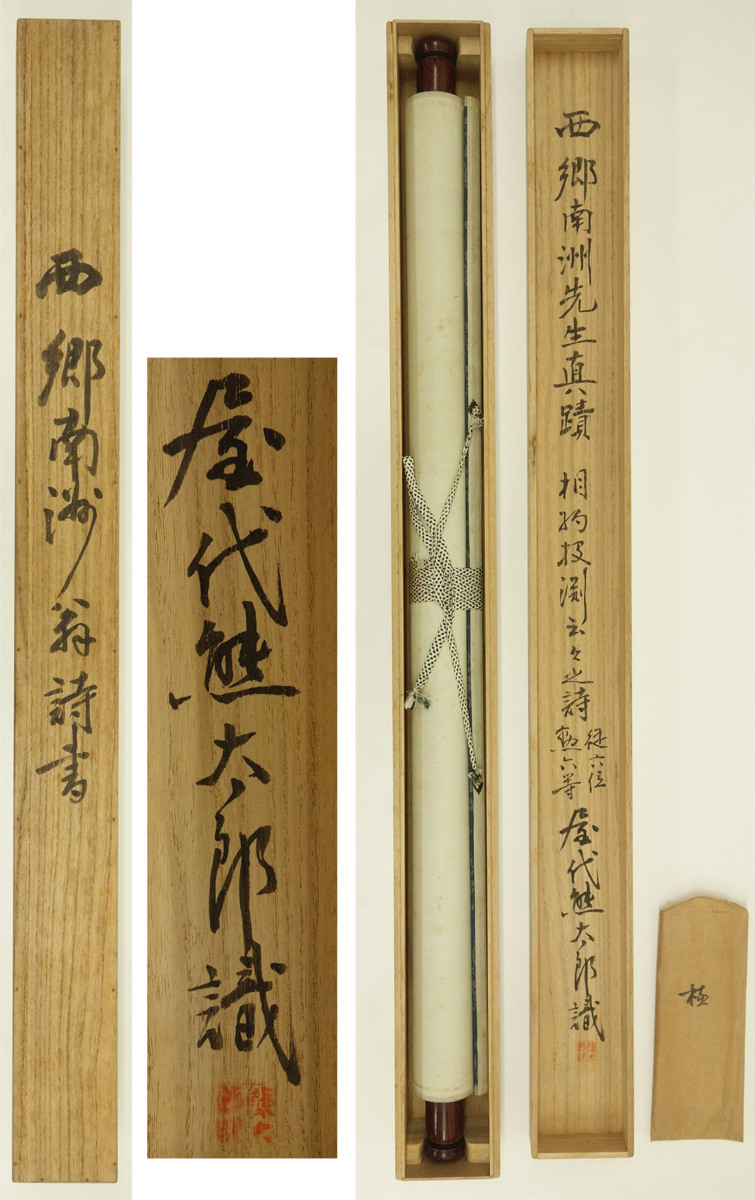 西郷南洲翁詩書
屋代熊太郎識
西郷南洲先生真蹟 相約投渕云々之詩
従六位
勲六等
屋代熊太郎識
極